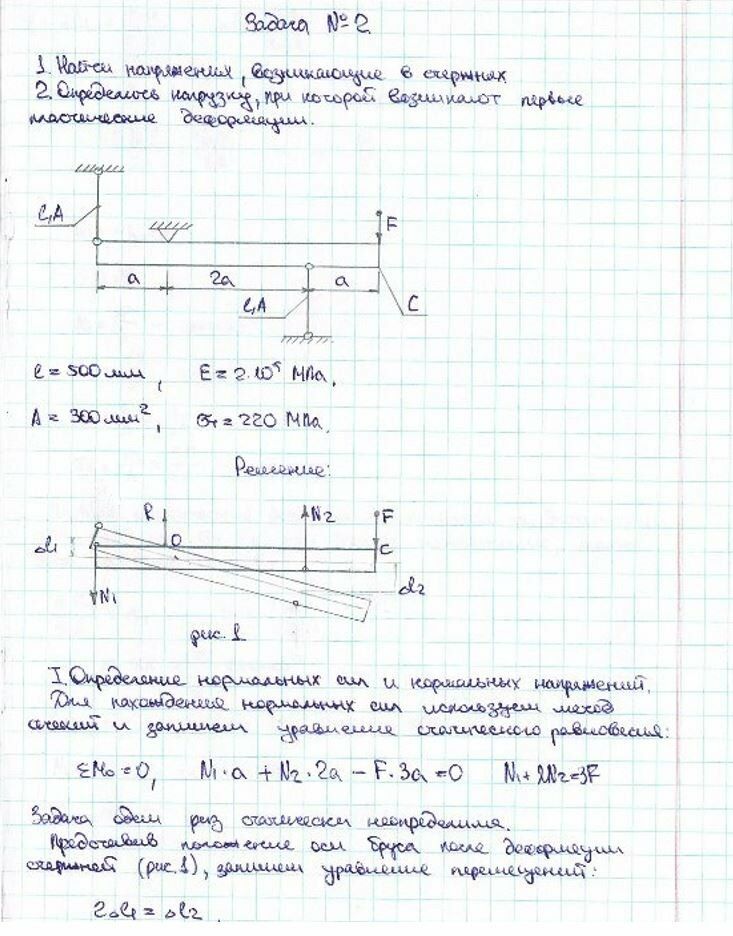 Задача № 2
1. Найти напряжения, возникающие в стержнях
2. Определить нагрузку, при которой возникают первые
пластические деформации.
l,A
F
a
2a
a
l,A
C
l = 500 мм, E = 2·10⁵ МПа,
A = 300 мм², σт = 220 МПа.
Решение:
R
N2
F
Δl1
O
C
Δl2
N1
рис. 1
I. Определение нормальных сил и нормальных напряжений.
Для нахождения нормальных сил используем метод
сечений и запишем уравнение статического равновесия:
ΣMo = 0, N1·a + N2·2a − F·3a = 0 N1 + 2N2 = 3F
Задача один раз статически неопределима.
Представив положение оси бруса после деформации
стержней (рис. 1), запишем уравнение перемещений:
2Δl1 = Δl2.